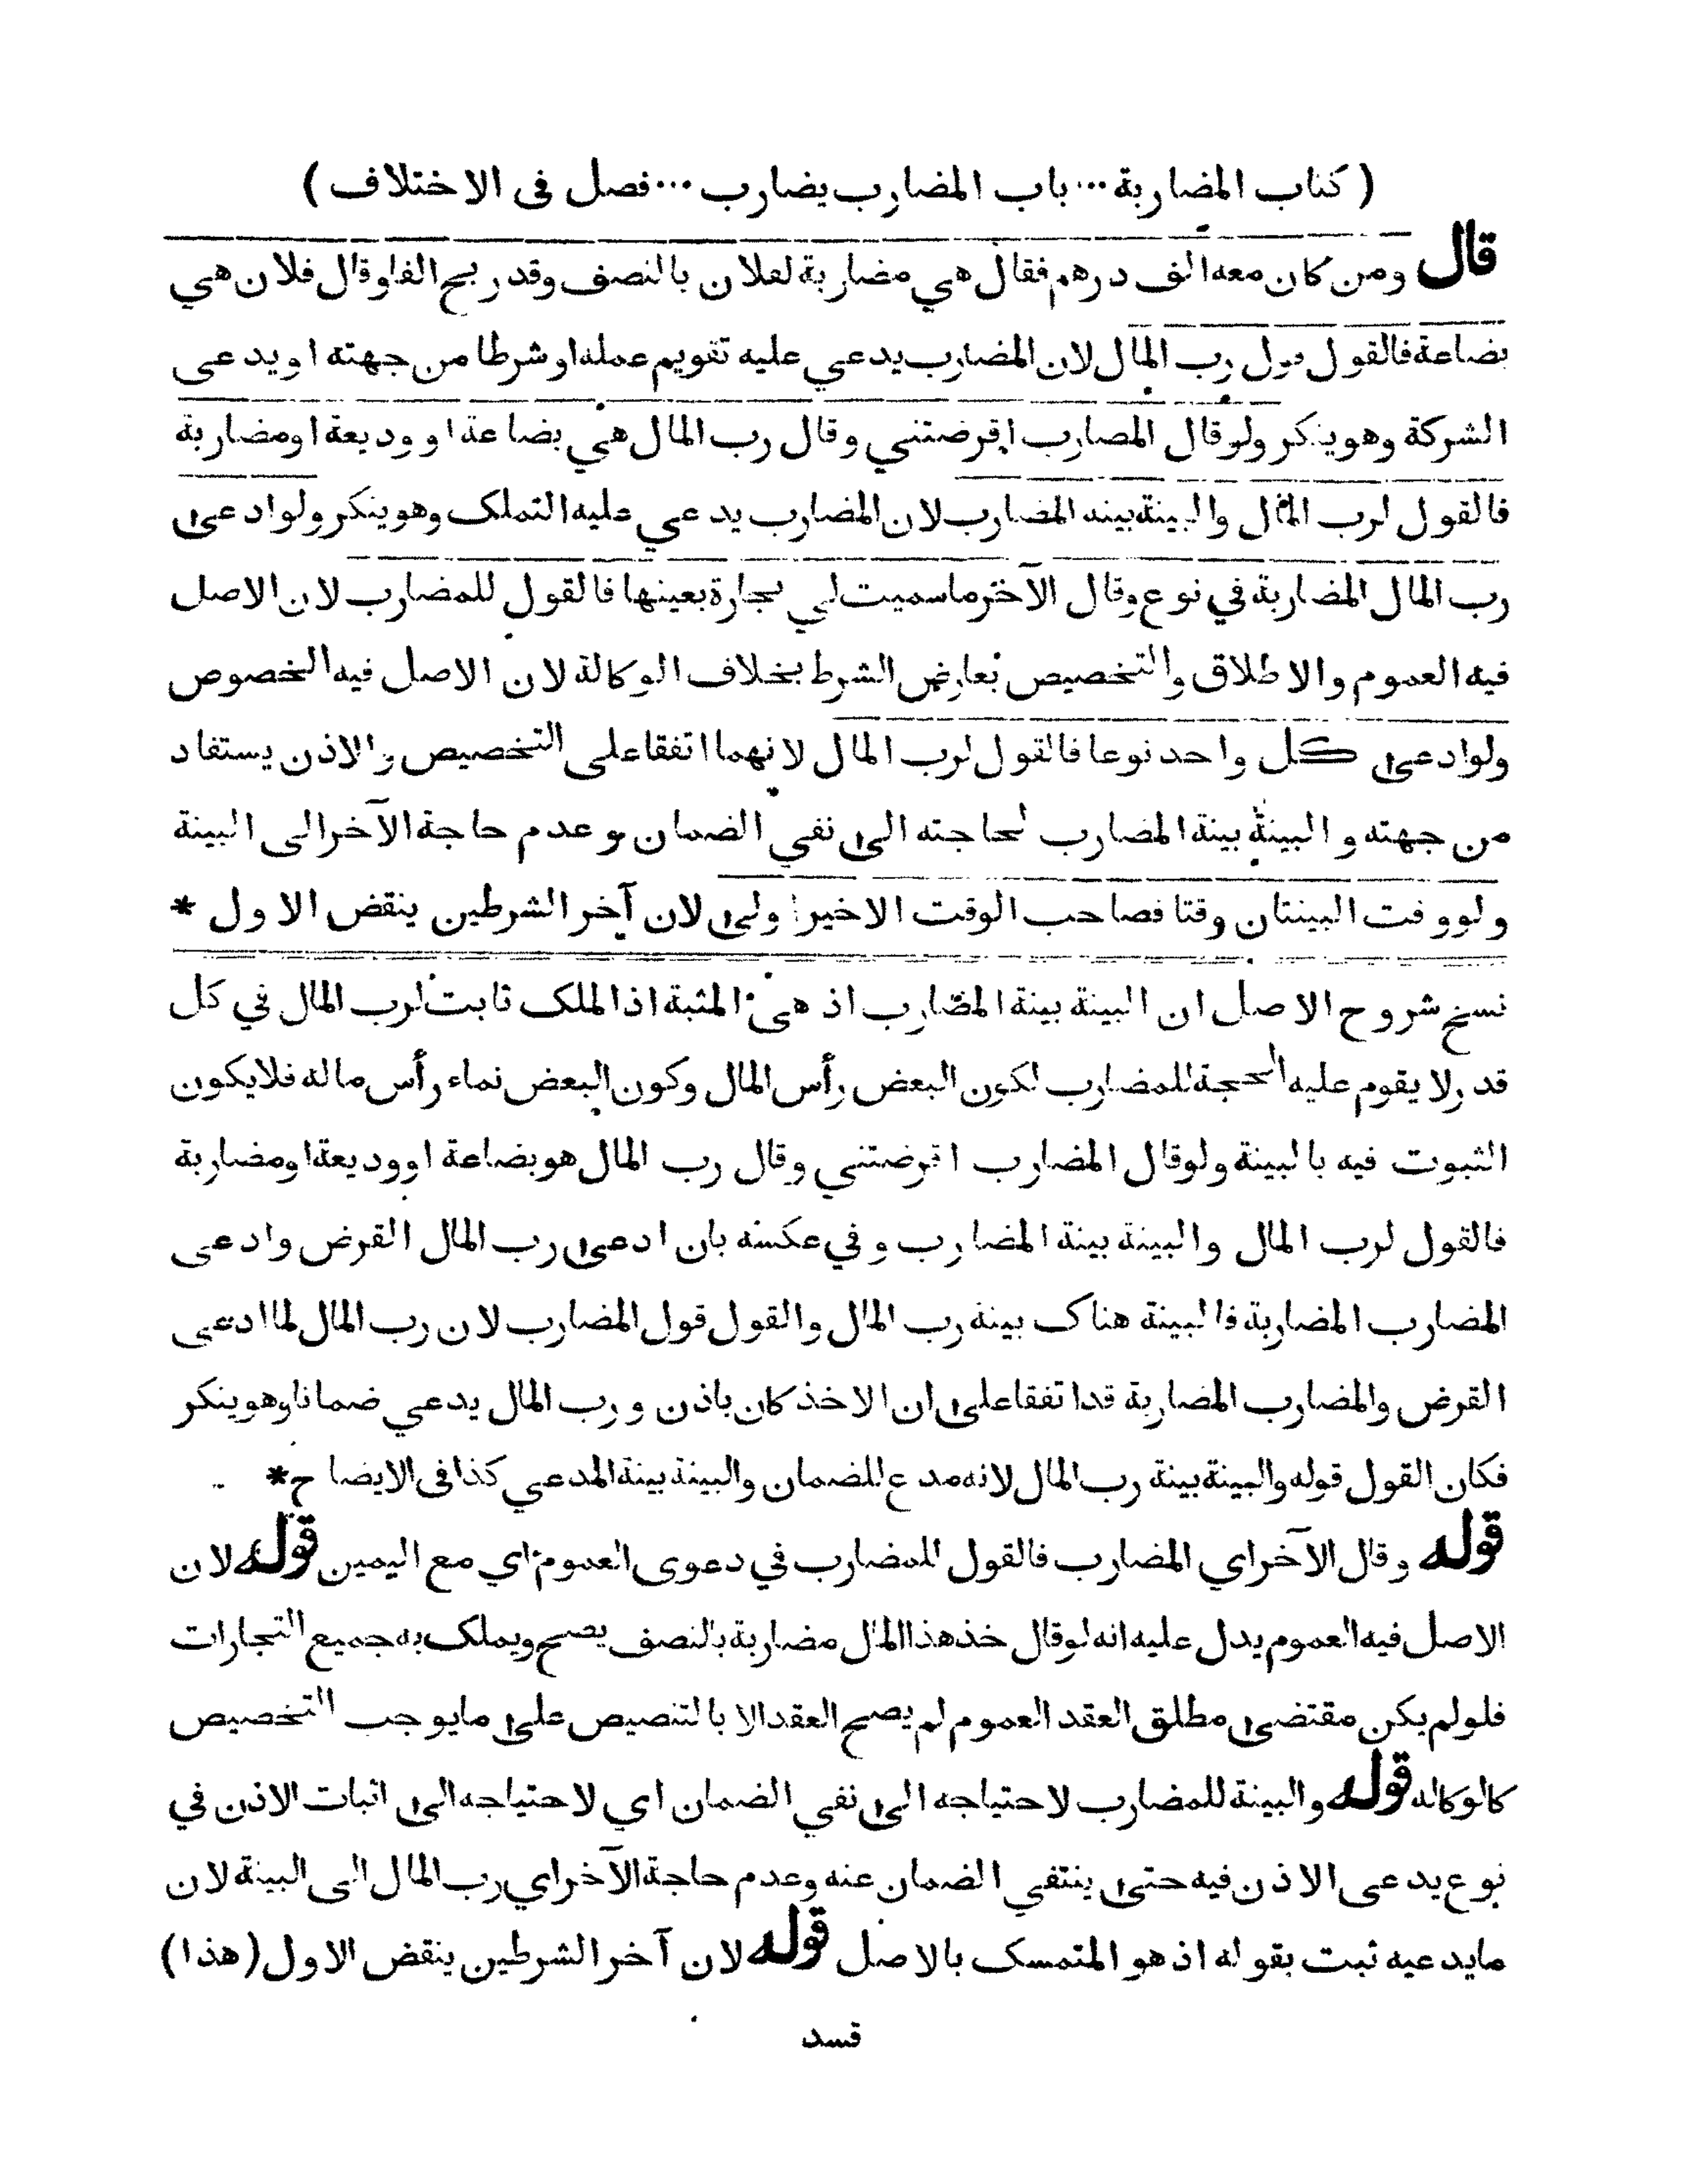 ( كتاب المضاربة ... باب المضارب يضارب ... فصل في الاختلاف )
قال ومن كان معه الف درهم فقال هي مضاربة لفلان بالنصف وقد ربح الفا وقال فلان هي
بضاعة فالقول قول رب المال لان المضارب يدعي عليه تقويم عمله او شرطا من جهته او يدعى
الشركة وهو ينكر ولو قال المضارب اقرضتني وقال رب المال هي بضاعة او وديعة او مضاربة
فالقول لرب المال والبينة بينه المضارب لان المضارب يدعي عليه التملك وهو ينكر ولو ادعى
رب المال المضاربة في نوع وقال الآخر ما سميت لي تجارة بعينها فالقول للمضارب لان الاصل
فيه العموم والاطلاق والتخصيص بعارض الشرط بخلاف الوكالة لان الاصل فيه الخصوص
ولو ادعى كل واحد نوعا فالقول لرب المال لانهما اتفقا على التخصيص والاذن يستفاد
من جهته والبينة بينة المضارب لحاجته الى نفي الضمان وعدم حاجة الآخر الى البينة
ولو وقت البينتان وقتا فصاحب الوقت الاخير اولى لان آخر الشرطين ينقض الاول *
نسخ شروح الاصل ان البينة بينة المضارب اذ هى المثبة اذا الملك ثابت لرب المال في كل
قد ر لا يقوم عليه الحجة للمضارب لكون البعض رأس المال وكون البعض نماء رأس ماله فلا يكون
الثبوت فيه بالبينة ولو قال المضارب اقرضتني وقال رب المال هو بضاعة او وديعة او مضاربة
فالقول لرب المال والبينة بينة المضارب وفي عكسه بان ادعى رب المال القرض وادعى
المضارب المضاربة فالبينة هناك بينة رب المال والقول قول المضارب لان رب المال لما ادعى
القرض والمضارب المضاربة قد اتفقا على ان الاخذ كان باذن ورب المال يدعي ضمانا وهو ينكر
فكان القول قوله والبينة بينة رب المال لانه مدع للضمان والبينة بينة المدعي كذا في الايضاح *
قوله وقال الآخر اي المضارب فالقول للمضارب في دعوى العموم اي مع اليمين قوله لان
الاصل فيه العموم يدل عليه انه لو قال خذ هذا المال مضاربة بالنصف يصح ويملك به جميع التجارات
فلو لم يكن مقتضى مطلق العقد العموم لم يصح العقد الا بالتنصيص على ما يوجب التخصيص
كالوكاله قوله والبينة للمضارب لاحتياجه الى نفي الضمان اي لاحتياجه الى اثبات الاذن في
نوع يدعى الاذن فيه حتى ينتفي الضمان عنه وعدم حاجة الآخر اي رب المال الى البينة لان
ما يدعيه ثبت بقوله اذ هو المتمسك بالاصل قوله لان آخر الشرطين ينقض الاول ( هذا )
قسد